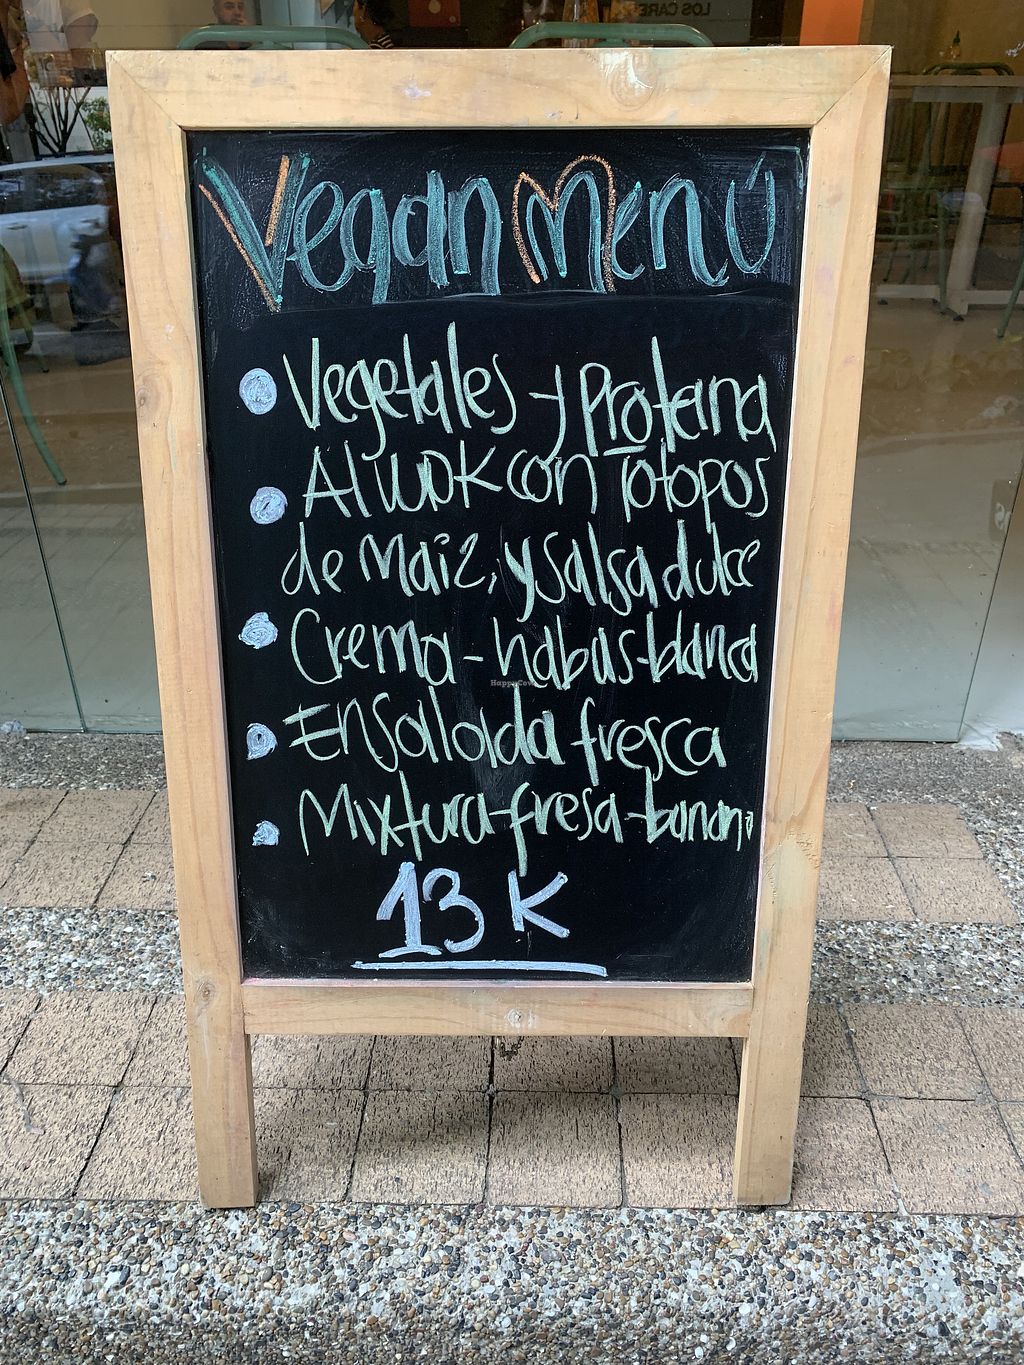 LOS CARE
Vegan Menú
Vegetales y Proteina
Al wok con Totopos
de maiz, y salsa dulce
Crema - habas-blanca
Ensalada fresca
Mixtura-fresa-banano
13 K
HappyCow